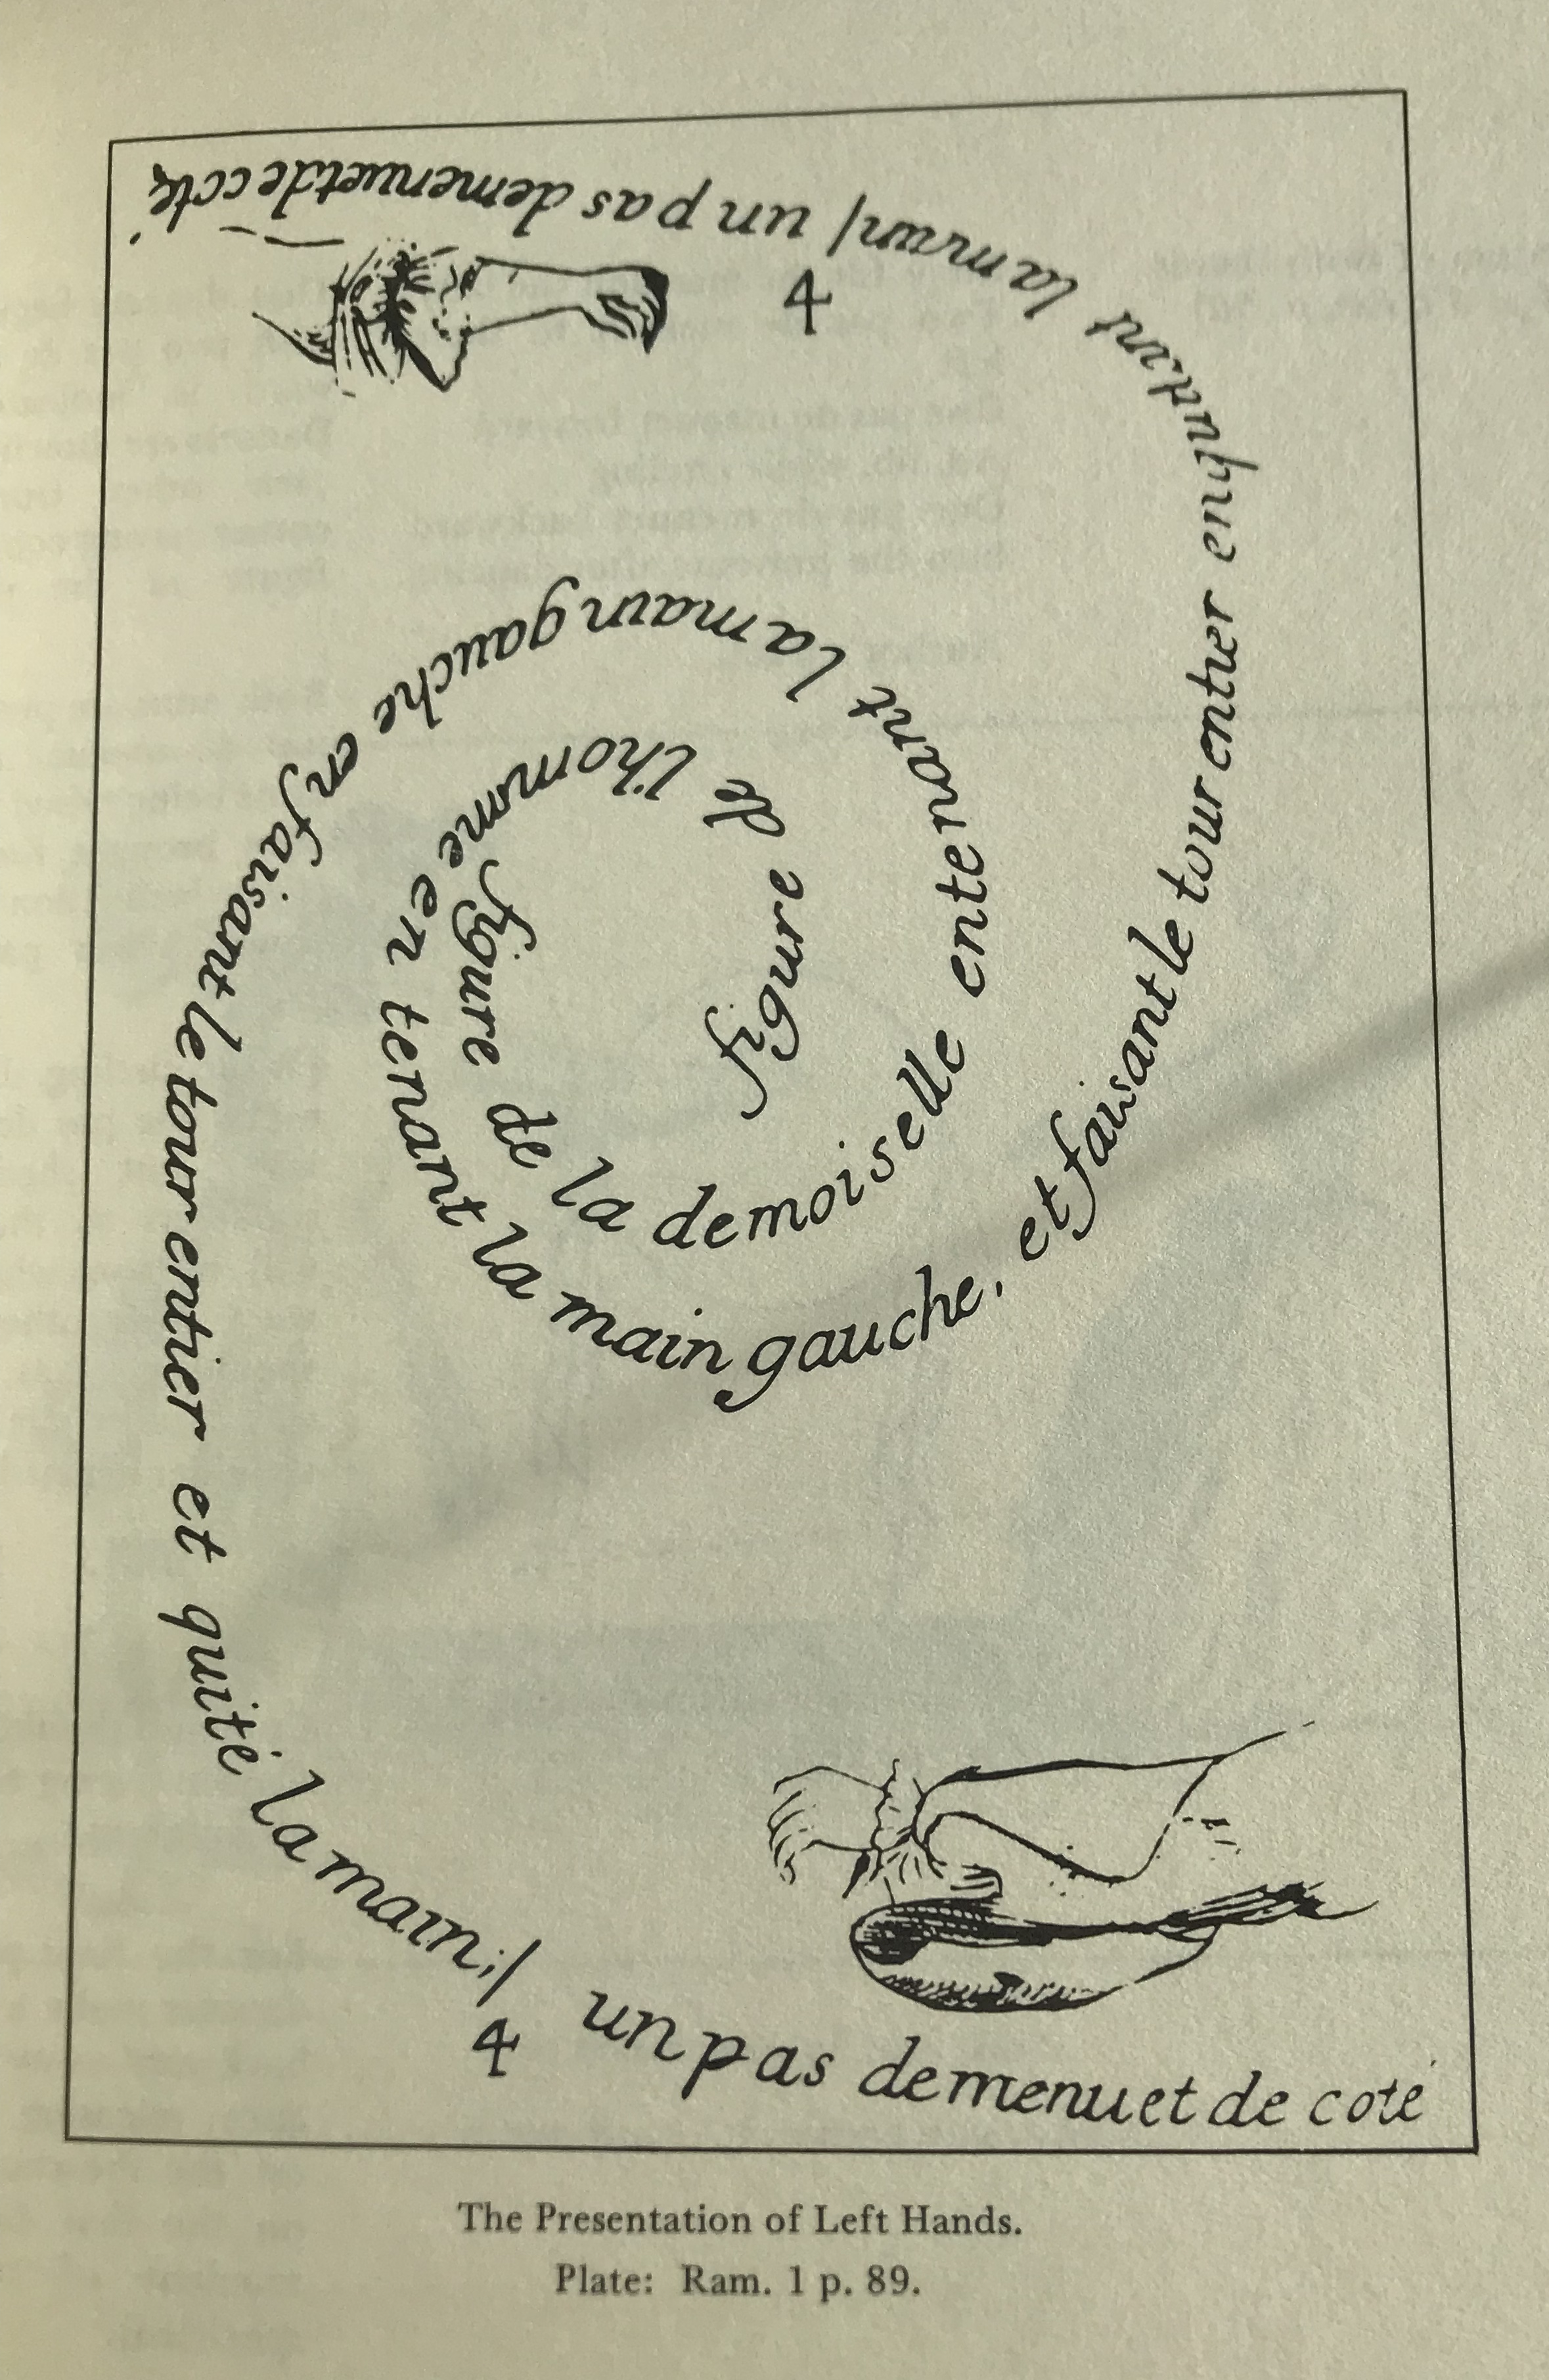 figure de l'homme en tenant la main gauche, et faisant le tour entier en la main/ un pas de menuet de coté
4
figure de la demoiselle en tenant la main gauche en faisant le tour entier et quité la main;/ un pas de menuet de coté
4
The Presentation of Left Hands.
Plate: Ram. 1 p. 89.